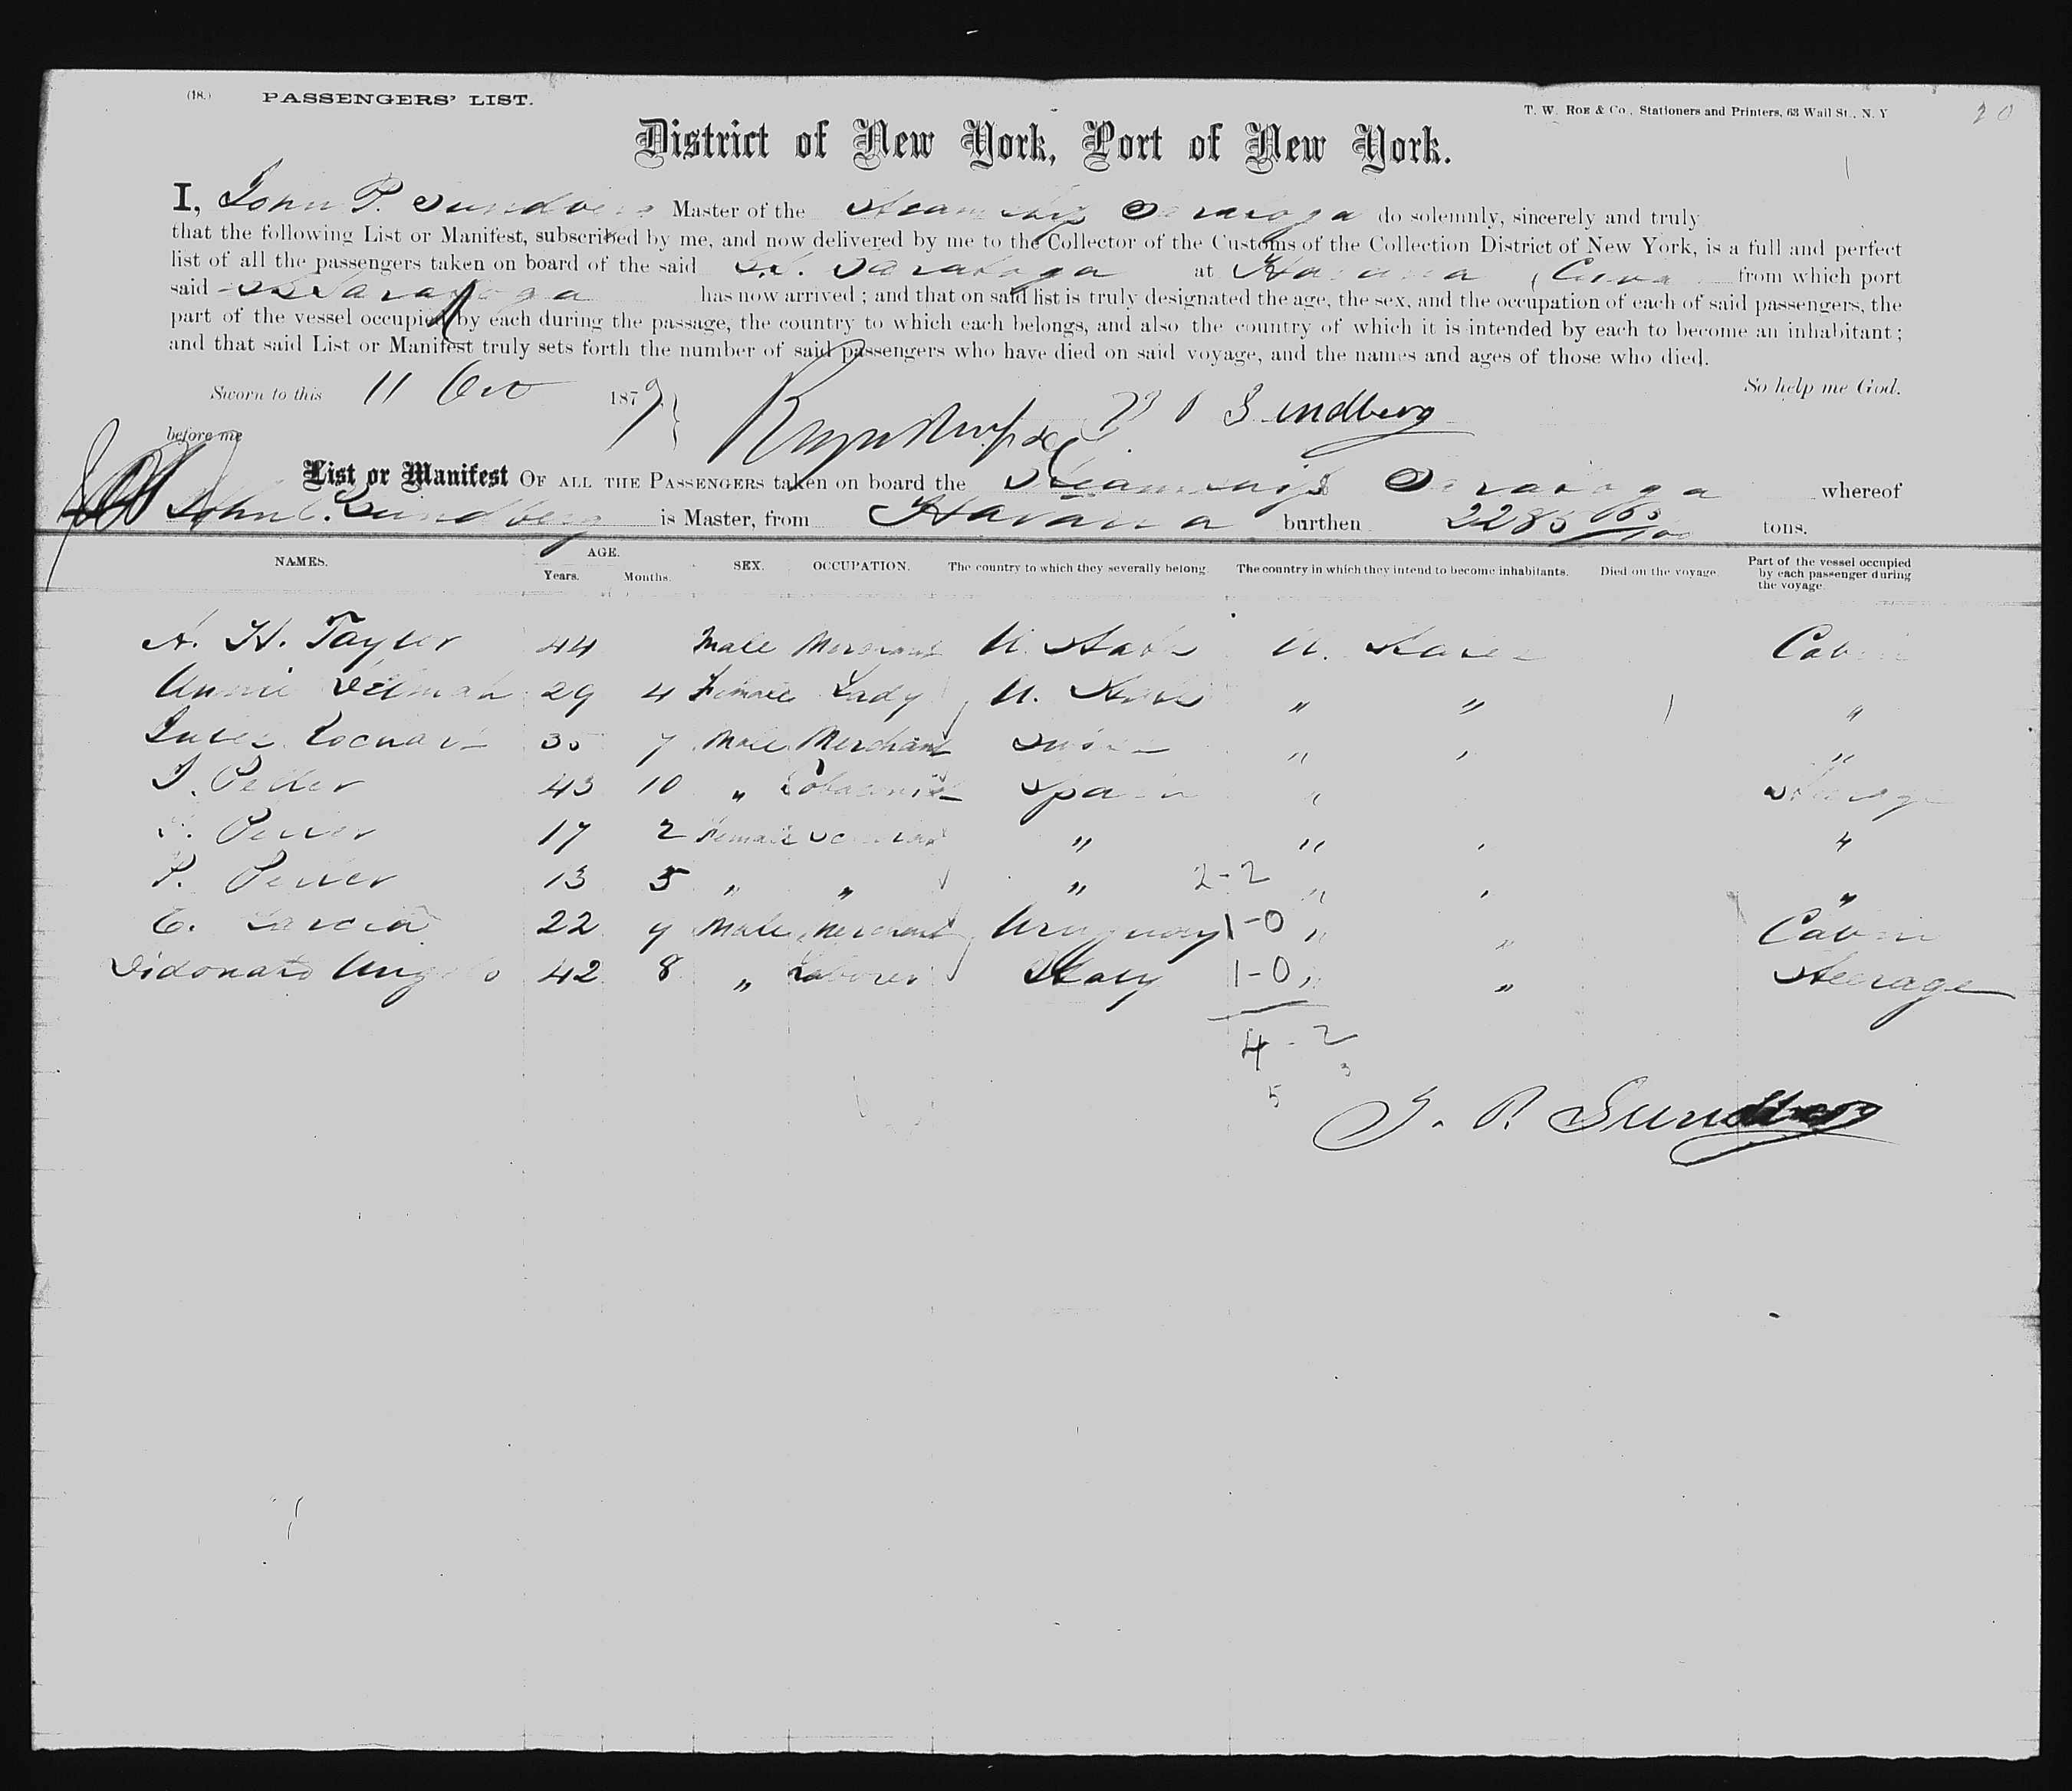 (18.) PASSENGERS' LIST.
T. W. ROE & Co., Stationers and Printers, 63 Wall St., N. Y
20
District of New York, Port of New York.
I, John P. Sundberg Master of the Steamship Saratoga do solemnly, sincerely and truly
that the following List or Manifest, subscribed by me, and now delivered by me to the Collector of the Customs of the Collection District of New York, is a full and perfect
list of all the passengers taken on board of the said S.S. Saratoga at Havana, Cuba from which port
said SS Saratoga has now arrived; and that on said list is truly designated the age, the sex, and the occupation of each of said passengers, the
part of the vessel occupied by each during the passage, the country to which each belongs, and also the country of which it is intended by each to become an inhabitant;
and that said List or Manifest truly sets forth the number of said passengers who have died on said voyage, and the names and ages of those who died.
So help me God.
Sworn to this 11 Oct 1879
before me
Sundberg
List or Manifest OF ALL THE PASSENGERS taken on board the Steamship Saratoga whereof
John P. Sundberg is Master, from Havana burthen 2285 tons.
NAMES. AGE. Years. Months. SEX. OCCUPATION. The country to which they severally belong The country in which they intend to become inhabitants. Died on the voyage. Part of the vessel occupied by each passenger during the voyage
A. H. Taylor 44 Male Merchant U. States U. States Cabin
Annie 29 4 Female Lady U. States " " "
35 7 Male Merchant " " "
43 10 " Tobacconist Spain " Steerage
17 2 Female " " " "
P. 13 5 " " " 2-2 " " "
Garcia 22 9 Male Merchant Uruguay 1-0 " " Cabin
Didonato Angelo 42 8 " Laborer Italy 1-0 " " Steerage
4-2
5 3
J. P. Sundberg